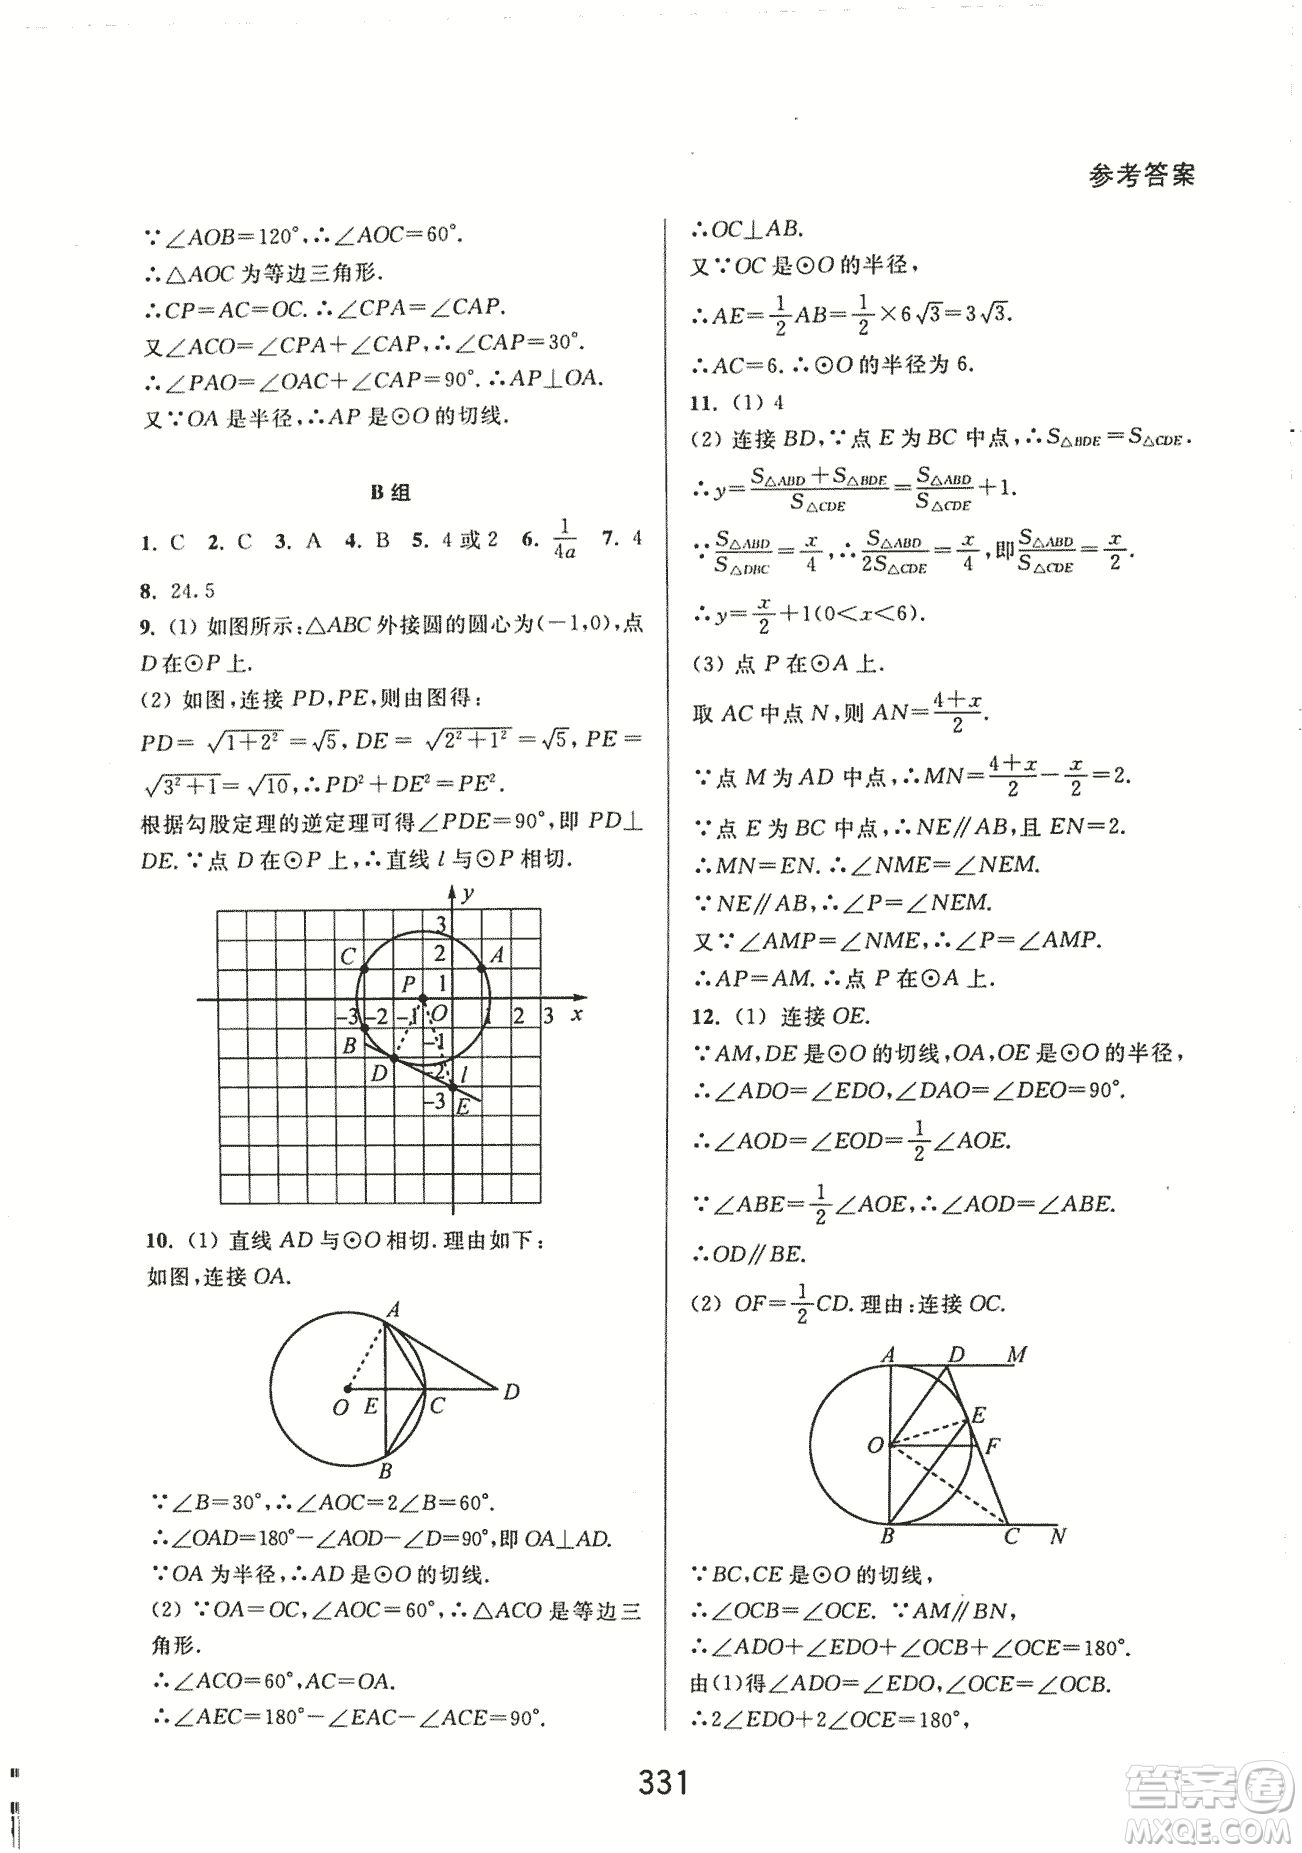 参考答案
∵∠AOB=120°,∴∠AOC=60°.
∴△AOC 为等边三角形.
∴CP=AC=OC.∴∠CPA=∠CAP.
又∠ACO=∠CPA+∠CAP,∴∠CAP=30°.
∴∠PAO=∠OAC+∠CAP=90°.∴AP⊥OA.
又∵OA 是半径,∴AP 是⊙O 的切线.
B 组
1. C 2. C 3. A 4. B 5. 4 或 2 6. 1/4a 7. 4
8. 24.5
9. (1) 如图所示:△ABC 外接圆的圆心为(-1,0),点
D 在⊙P 上.
(2) 如图,连接 PD,PE,则由图得:
PD=√(1+2²)=√5,DE=√(2²+1²)=√5,PE=
√(3²+1)=√10,∴PD²+DE²=PE².
根据勾股定理的逆定理可得∠PDE=90°,即 PD⊥
DE.∵点 D 在⊙P 上,∴直线 l 与⊙P 相切.
y
3
C 2 A
P 1
-3 -2 -1 O 1 2 3 x
B -1
D -2 l
-3 E
10. (1) 直线 AD 与⊙O 相切.理由如下:
如图,连接 OA.
A
O E C D
B
∵∠B=30°,∴∠AOC=2∠B=60°.
∴∠OAD=180°-∠AOD-∠D=90°,即 OA⊥AD.
∵OA 为半径,∴AD 是⊙O 的切线.
(2) ∵OA=OC,∠AOC=60°,∴△ACO 是等边三
角形.
∴∠ACO=60°,AC=OA.
∴∠AEC=180°-∠EAC-∠ACE=90°.
∴OC⊥AB.
又∵OC 是⊙O 的半径,
∴AE=1/2 AB=1/2×6√3=3√3.
∴AC=6.∴⊙O 的半径为 6.
11. (1) 4
(2) 连接 BD,∵点 E 为 BC 中点,∴S△BDE=S△CDE.
∴y=(S△ABD+S△BDE)/S△CDE=S△ABD/S△CDE+1.
∵S△ABD/S△DBC=x/4,∴S△ABD/2S△CDE=x/4,即S△ABD/S△CDE=x/2.
∴y=x/2+1(0<x<6).
(3) 点 P 在⊙A 上.
取 AC 中点 N,则 AN=(4+x)/2.
∵点 M 为 AD 中点,∴MN=(4+x)/2-x/2=2.
∵点 E 为 BC 中点,∴NE∥AB,且 EN=2.
∴MN=EN.∴∠NME=∠NEM.
∵NE∥AB,∴∠P=∠NEM.
又∵∠AMP=∠NME,∴∠P=∠AMP.
∴AP=AM.∴点 P 在⊙A 上.
12. (1) 连接 OE.
∵AM,DE 是⊙O 的切线,OA,OE 是⊙O 的半径,
∴∠ADO=∠EDO,∠DAO=∠DEO=90°.
∴∠AOD=∠EOD=1/2∠AOE.
∵∠ABE=1/2∠AOE,∴∠AOD=∠ABE.
∴OD∥BE.
(2) OF=1/2CD.理由:连接 OC.
A D M
E
O F
B C N
∵BC,CE 是⊙O 的切线,
∴∠OCB=∠OCE. ∵AM∥BN,
∴∠ADO+∠EDO+∠OCB+∠OCE=180°.
由(1)得∠ADO=∠EDO,∠OCE=∠OCB.
∴2∠EDO+2∠OCE=180°,
331
答案卷
MXQE.COM